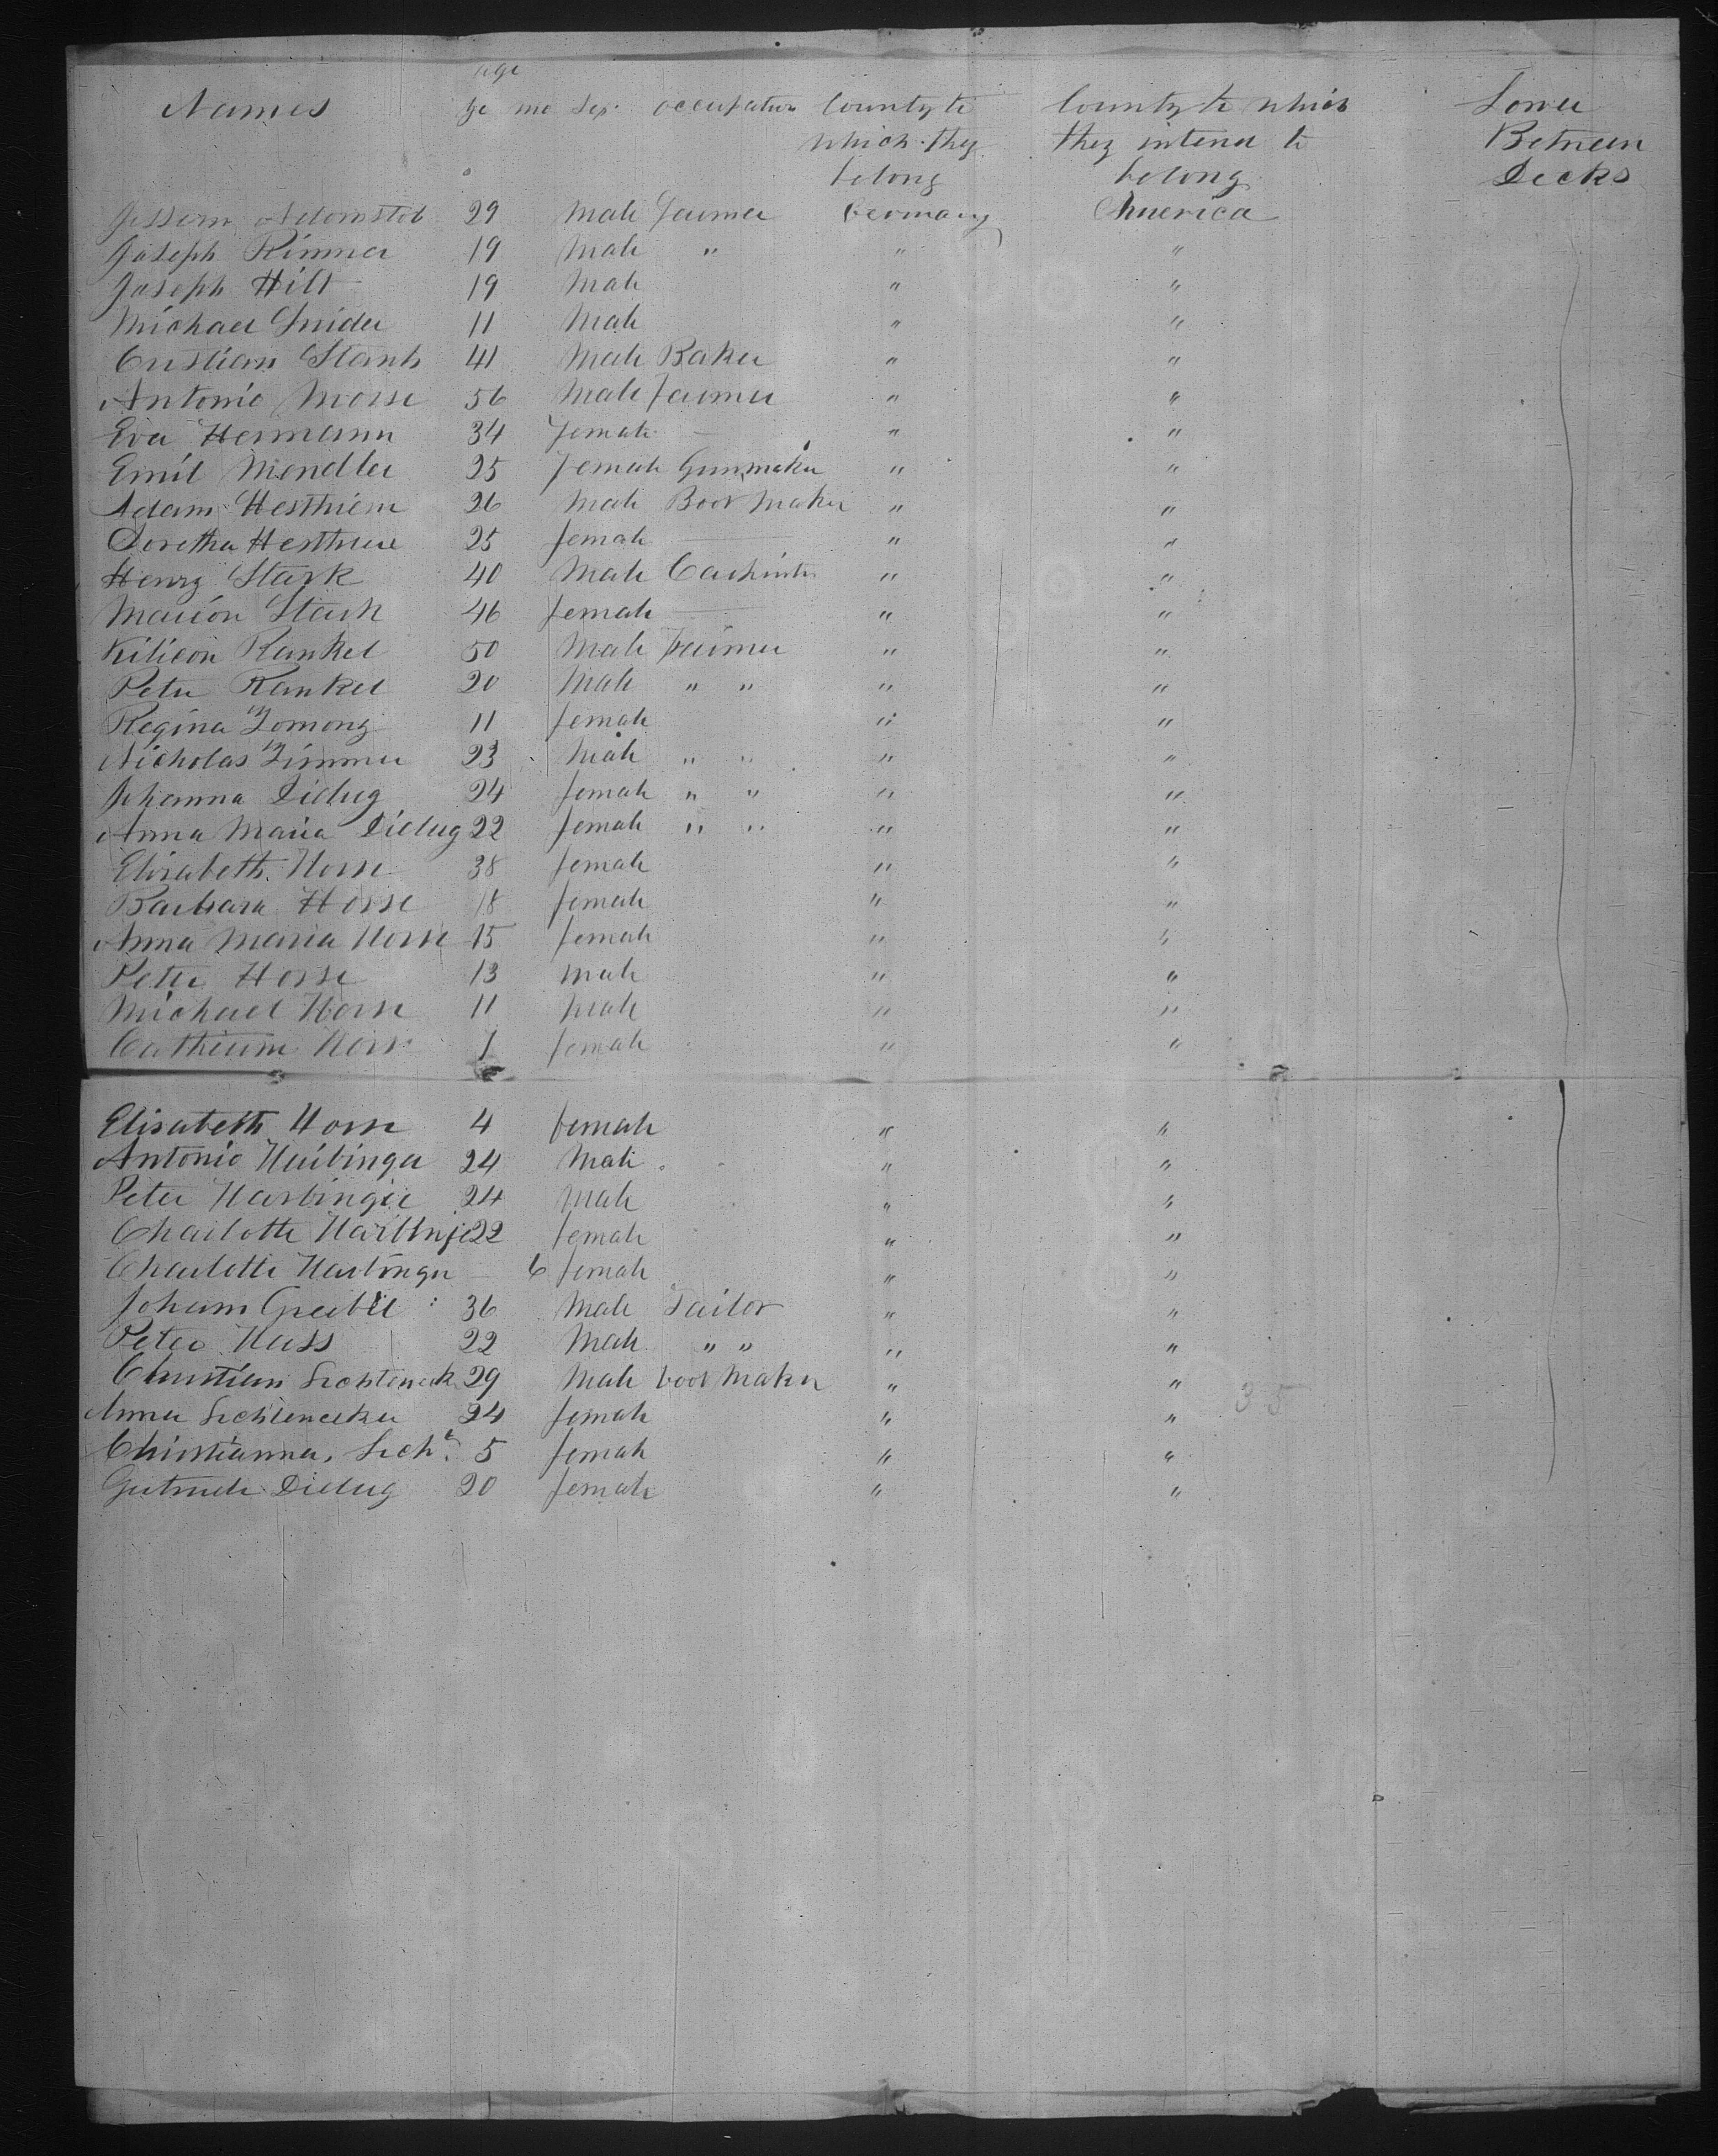 age
Names ye mo Sex occupation County to County to which Lower
which they they intend to Between
belong belong Decks
Adomstob 29 Male Farmer Germany America
Joseph Rimmer 19 Male " " "
Joseph Hilt 19 Male " "
Michael Snider 11 Male " "
Cristian Stank 41 Male Baker " "
Antonio Morse 56 Male Farmer " "
Eva Hermann 34 Female — " "
Emil Mendler 25 Female Gunmaker " "
Adam Hesthiem 26 Male Boot Maker " "
Doretha 25 female — " "
Henry Stark 40 Male " "
Marion Stark 46 female — " "
Kilieon Runkel 50 Male Farmer " "
Peter Runkel 20 Male " " " "
Regina Zomong 11 female " "
Nicholas Zimmer 23 Male " " " "
Johanna Dielug 24 female " " " "
Anna Maria Dielug 22 female " " " "
Elisabeth Horse 38 female " "
Barbara Horse 18 female " "
Anna Maria Horse 15 female " "
Peter Horse 13 male " "
Michael Horse 11 Male " "
Horse 1 female " "
Elisabeth Horse 4 female " "
Antonio Harbinger 24 Male " "
Peter Harbinger 24 Male " "
Charlotte 22 female " "
Charlotte Harbinger — 6 female " "
Joham 36 Male Tailor " "
Peter Huss 22 Male " " " "
Christian 29 Male boot Maker " "
35
Anna 24 female " "
Christianna, Lich 5 female " "
Gutrude Dielug 20 female " "